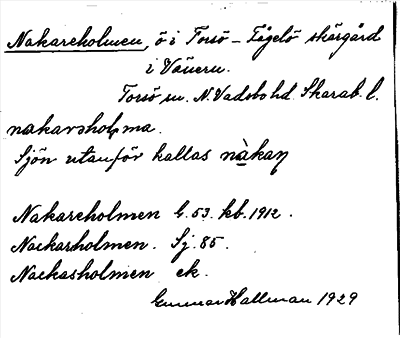 Nakareholmen, ö i Torsö – Fågelö skärgård
i Vänern.
Torsö sn. N. Vadsbo hd. Skarab. l.
nakarshol̥ma.
Sjön utanför kallas nàkaɳ
Nakareholmen G. 53. kb. 1912.
Nackarholmen. Sj. 85.
Nackasholmen ek.
Gunnar Hallman 1929